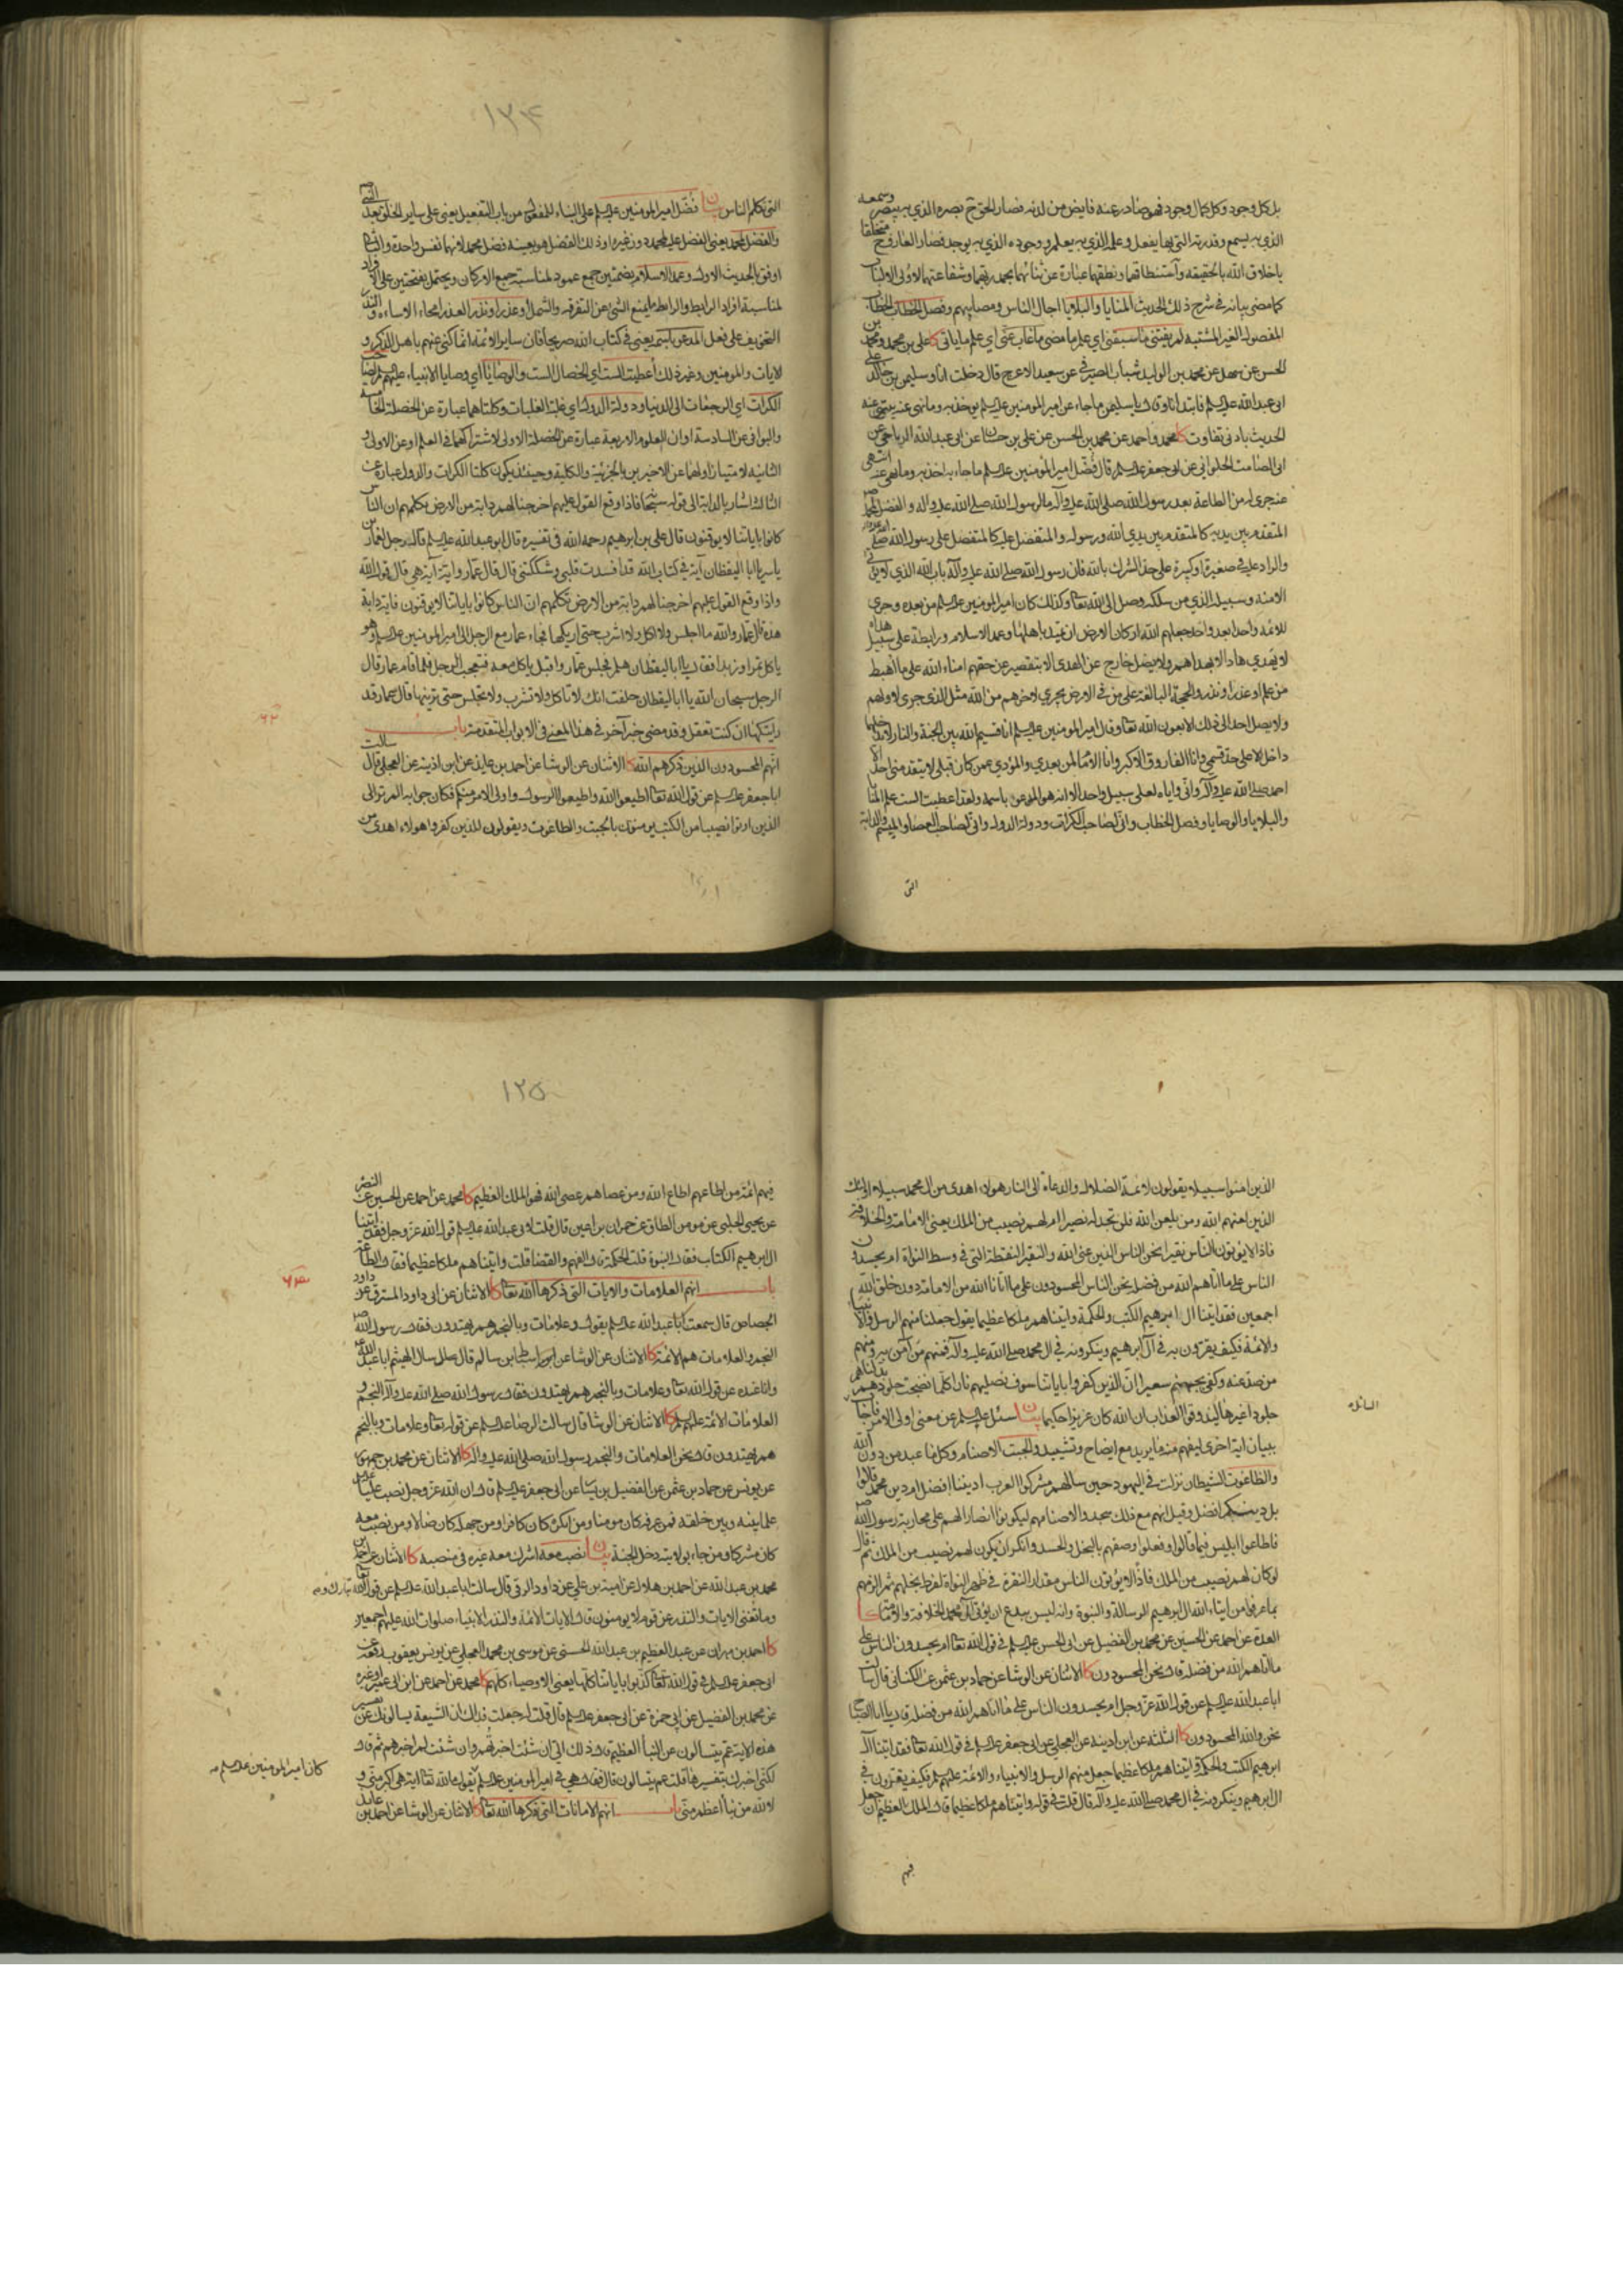 بل كل وجود وكل كمال وجود فهو صادر عنه فايض من لدنه فصار الحق ح بصره الذي به يبصر وسمعه
الذي به يسمع وقدرته التي بها يفعل وعلمه الذي به يعلم ووجوده الذي به يوجد فصار العارف ح متخلقا
باخلاق الله بالحقيقه واستنطاقهما ونطقهما عبارة عن ثنائهما بحمد ربهما وشفاعتهما لاولى الالباب
كما مضى بيانه في شرح ذلك الحديث المنايا والبلايا اجال الناس ومصايبهم وفصل الخطاب الخطاب
المفصول الغير المشتبه لم يفتني ما سبقني اي علم ما مضى ما غاب عني اي علم ما ياتي كا علي بن محمد ومحمد بن
الحسن عن سهل عن محمد بن الوليد شباب الصيرفي عن سعيد الاعرج قال دخلت انا وسليمن بن خالد على
ابي عبد الله عليه السلم فابتدانا وقال يا سليمن ما جاء عن امير المومنين عليه السلم يوخذ به وما نهى عنه ينتهى عنه
الحديث بادنى تفاوت كا محمد واحمد عن محمد بن الحسن عن علي بن حسان عن ابي عبد الله الرياحي عن
ابي الصامت الحلواني عن ابي جعفر عليه السلم قال فضل امير المؤمنين عليه السلم ما جاء به اخذ به وما نهى عنه انتهى
عنه جرى له من الطاعة بعد رسول الله صلى الله عليه وآله ما لرسول الله صلى الله عليه واله والفضل لمحمد ص
المتقدم بين يديه كالمتقدم بين يدي الله ورسوله والمتفضل عليه كالمتفضل على رسول الله صلى الله عليه واله
والراد عليه في صغيرة او كبيرة على حد الشرك بالله فان رسول الله صلى الله عليه وآله باب الله الذي لا يؤتى
الا منه وسبيله الذي من سلكه وصل الى الله تعالى وكذلك كان امير المومنين عليه السلم من بعده وجرى
للائمه واحدا بعد واحد جعلهم الله اركان الارض ان تميد باهلها وعمد الاسلام ورابطة على سبيل هداه
لا يهتدي هاد الا بهداهم ولا يضل خارج عن الهدى الا بتقصير عن حقهم امناء الله على ما اهبط
من علم او عذر او نذر والحجة البالغة على من في الارض يجري لاخرهم من الله مثل الذي جرى لاولهم
ولا يصل احد الى ذلك الا بعون الله تعالى وقال امير المومنين عليه السلم انا قسيم الله بين الجنة والنار لا يدخلها
داخل الا على حد قسمي وانا الفاروق الاكبر وانا الامام لمن بعدي والمؤدي عمن كان قبلي لا يتقدمني احد الا
احمد صلى الله عليه وآله واني واياه لعلى سبيل واحد الا انه هو المدعو باسمه ولقد اعطيت الست علم المنايا
والبلايا والوصايا وفصل الخطاب واني لصاحب الكرات ودولة الدول واني لصاحب العصا والميسم والدابة
التي
١٢٤
التي تكلم الناس بيان فضل امير المومنين عليه السلم على البناء للمفعول من باب التفعيل يعنى على ساير الخلق بعد النبي ص
والفضل لمحمد يعنى الفضل عليه لمحمد دون غيره او ذلك الفضل هو بعينه فضل محمد لانهما نفس واحدة والثاني
اوفق بالحديث الاول وعمد الاسلام بضمتين جمع عمود لمناسبته جمع الاركان ويحتمل بفتحتين على الافراد
لمناسبة افراد الرابط والرابط ما يمنع الشئ عن التفرقه والشمل او عذر او نذر العذر امحاء الاساءه والنذر
التخويف على فعل المدعو باسمه يعنى في كتاب الله صريحا فان ساير الائمة انما كنى عنهم باهل الذكر و
الايات والمومنين وغير ذلك اعطيت الست اي الخصال الست والوصايا اي وصايا الانبياء عليهم السلم
الكرات اي الرجعات الى الدنيا ودولة الدول اي غلبة الغلبات وكلتاهما عبارة عن الخصلة الخامسة
والبواقي عن السادسة او ان العلوم الاربعة عبارة عن الخصلة الاولى لاشتراكها في العلم او عن الاولى و
الثانيه لامتياز اولها عن الاخيرين بالجزئية والكلية وحينئذ يكون كلتا الكرات والدول عبارة عن
الثالثة اشار بالدابة الى قوله سبحانه فاذا وقع القول عليهم اخرجنا لهم دابة من الارض تكلمهم ان الناس
كانوا باياتنا لا يوقنون قال علي بن ابرهيم رحمه الله في تفسيره قال ابو عبد الله عليه السلم قال رجل لعمار بن
ياسر يا ابا اليقظان آية في كتاب الله قد افسدت قلبي وشككتني قال قال عمار واية آية هي قال قول الله
واذا وقع القول عليهم اخرجنا لهم دابة من الارض تكلمهم ان الناس كانوا باياتنا لا يوقنون فاية دابة
هذه قال عمار والله ما اجلس ولا اكل ولا اشرب حتى اريكها فجاء عمار مع الرجل الى امير المومنين عليه السلم وهو
ياكل تمرا وزبدا فقال يا ابا اليقظان هلم فجلس عمار واقبل ياكل معه فتعجب الرجل فلما قام عمار قال
الرجل سبحان الله يا ابا اليقظان حلفت انك لا تاكل ولا تشرب ولا تجلس حتى ترينيها قال عمار قد
اريتكها ان كنت تعقل وقد مضى خبر آخر في هذا المعنى في الابواب المتقدمة باب
انهم المحسودون الذين ذكرهم الله كا الاثنان عن الوشا عن احمد بن عايذ عن ابن اذينه عن العجلي قال سالت
ابا جعفر عليه السلم عن قول الله تعالى اطيعوا الله واطيعوا الرسول واولى الامر منكم فكان جوابه الم تر الى
الذين اوتوا نصيبا من الكتب يومنون بالجبت والطاغوت ويقولون للذين كفروا هولاء اهدى من
٦٢
الذين امنوا سبيلا يقولون لائمة الضلال والدعاة الى النار هولاء اهدى من ال محمد سبيلا اولئك
الذين لعنهم الله ومن يلعن الله فلن تجد له نصيرا ام لهم نصيب من الملك يعنى الامامة والخلافة
فاذا لا يؤتون الناس نقيرا نحن الناس الذين عنى الله والنقير النقطة التي في وسط النواة ام يحسدون
الناس على ما اتاهم الله من فضله نحن الناس المحسودون على ما اتانا الله من الامامة دون خلق الله
اجمعين فقد اتينا ال ابرهيم الكتب والحكمة واتيناهم ملكا عظيما يقول جعلنا منهم الرسل والانبياء
والائمة فكيف يقرون به في آل ابرهيم وينكرونه في ال محمد صلى الله عليه وآله فمنهم من آمن به ومنهم
من صد عنه وكفى بجهنم سعيرا ان الذين كفروا باياتنا سوف نصليهم نارا كلما نضجت جلودهم بدلناهم
جلودا غيرها ليذوقوا العذاب ان الله كان عزيزا حكيما بيان سئل عليه السلم عن معنى اولى الامر فاجاب
ببيان اية اخرى ليفهم منه ما يريد مع ايضاح وتشييد والجبت الاصنام وكل ما عبد من دون الله
والطاغوت الشيطان نزلت في اليهود حين سالهم مشركوا العرب اديننا افضل ام دين محمد قالوا
بل دينكم افضل وقيل انهم مع ذلك سجدوا لاصنامهم ليكونوا انصارا لهم على محاربة رسول الله ص
فاطاعوا ابليس فيما قالوا وفعلوا وصفهم بالبخل والحسد وانكر ان يكون لهم نصيب من الملك ثم قال
لو كان لهم نصيب من الملك فاذا لا يؤتون الناس مقدار النقرة في ظهر النواة لفرط بخلهم ثم الزمهم
بما عرفوا من ايتاء الله ال ابرهيم الرسالة والنبوة وانه ليس ببدع ان يؤتى آل محمد الخلافة والامامة كا
العدة عن احمد عن الحسين عن محمد بن الفضيل عن ابي الحسن عليه السلم في قول الله تعالى ام يحسدون الناس على
ما اتاهم الله من فضله قال نحن المحسودون كا الاثنان عن الوشا عن حماد بن عثمن عن الكناني قال سالت
ابا عبد الله عليه السلم عن قول الله عز وجل ام يحسدون الناس على ما اتاهم الله من فضله قال يا ابا الصباح
نحن والله المحسودون كا الثلثة عن ابن اذينه عن العجلي عن ابي جعفر عليه السلم في قول الله تعالى فقد اتينا آل
ابرهيم الكتب والحكمة واتيناهم ملكا عظيما جعل منهم الرسل والانبياء والائمة عليهم السلم فكيف يقرون في
ال ابرهيم وينكرونه في ال محمد صلى الله عليه وآله قال قلت في قوله واتيناهم ملكا عظيما قال الملك العظيم ان جعل
فيهم
١٢٥
فيهم ائمة من اطاعهم اطاع الله ومن عصاهم عصى الله فهو الملك العظيم كا محمد عن احمد عن الحسين عن النضر
عن يحيى الحلبي عن مومن الطاق عن حمران بن اعين قال قلت لابي عبد الله عليه السلم قول الله عز وجل فقد اتينا
ال ابرهيم الكتاب فقال النبوة قلت الحكمة قال الفهم والقضا قلت واتيناهم ملكا عظيما فقال الطاعة
باب انهم العلامات والايات التي ذكرها الله تعالى كا الاثنان عن ابي داود المسترق عن داود
الجصاص قال سمعت ابا عبد الله عليه السلم يقول وعلامات وبالنجم هم يهتدون فقال رسول الله ص
النجم والعلامات هم الائمة كا الاثنان عن الوشا عن اسباط بن سالم قال سال الهيثم ابا عبد الله ع
وانا عنده عن قول الله تعالى وعلامات وبالنجم هم يهتدون فقال رسول الله صلى الله عليه وآله النجم و
العلامات الائمة عليهم السلم كا الاثنان عن الوشا قال سالت الرضا عليه السلم عن قوله تعالى وعلامات وبالنجم
هم يهتدون قال نحن العلامات والنجم رسول الله صلى الله عليه واله كا الاثنان عن محمد بن جمهور
عن يونس عن حماد بن عثمن عن الفضيل بن يسار عن ابي جعفر عليه السلم قال ان الله عز وجل نصب عليا
علما بينه وبين خلقه فمن عرفه كان مومنا ومن انكره كان كافرا ومن جهله كان ضالا ومن نصب معه
كان مشركا ومن جاء بولايته دخل الجنة بيان نصب معه اشرك معه غيره في منصبه كا الاثنان عن احمد بن
محمد بن عبد الله عن احمد بن هلال عن امية بن علي عن داود الرقي قال سالت ابا عبد الله عليه السلم عن قول الله تبارك وتعالى
وما تغني الايات والنذر عن قوم لا يومنون قال الايات الائمة والنذر الانبياء صلوات الله عليهم اجمعين
كا احمد بن مهران عن عبد العظيم بن عبد الله الحسني عن موسى بن محمد العجلي عن يونس بن يعقوب رفعه عن
ابي جعفر عليه السلم في قول الله تعالى كذبوا باياتنا كلها يعنى الاوصياء كلهم كا محمد عن احمد عن ابن ابي عمير او غيره
عن محمد بن الفضيل عن ابي حمزة عن ابي جعفر عليه السلم قال قلت له جعلت فداك ان الشيعة يسالونك عن تفسير
هذه الاية عم يتسالون عن النبأ العظيم قال ذلك الي ان شئت اخبرتهم وان شئت لم اخبرهم ثم قال
لكني اخبرك بتفسيرها قلت عم يتسالون قال فقال هي في امير المومنين عليه السلم يقول ما لله تعالى اية هي اكبر مني و
لا لله من نبأ اعظم مني باب انهم الامانات التي ذكرها الله تعالى كا الاثنان عن الوشا عن احمد بن عايذ
كان امير المومنين عليه السلم